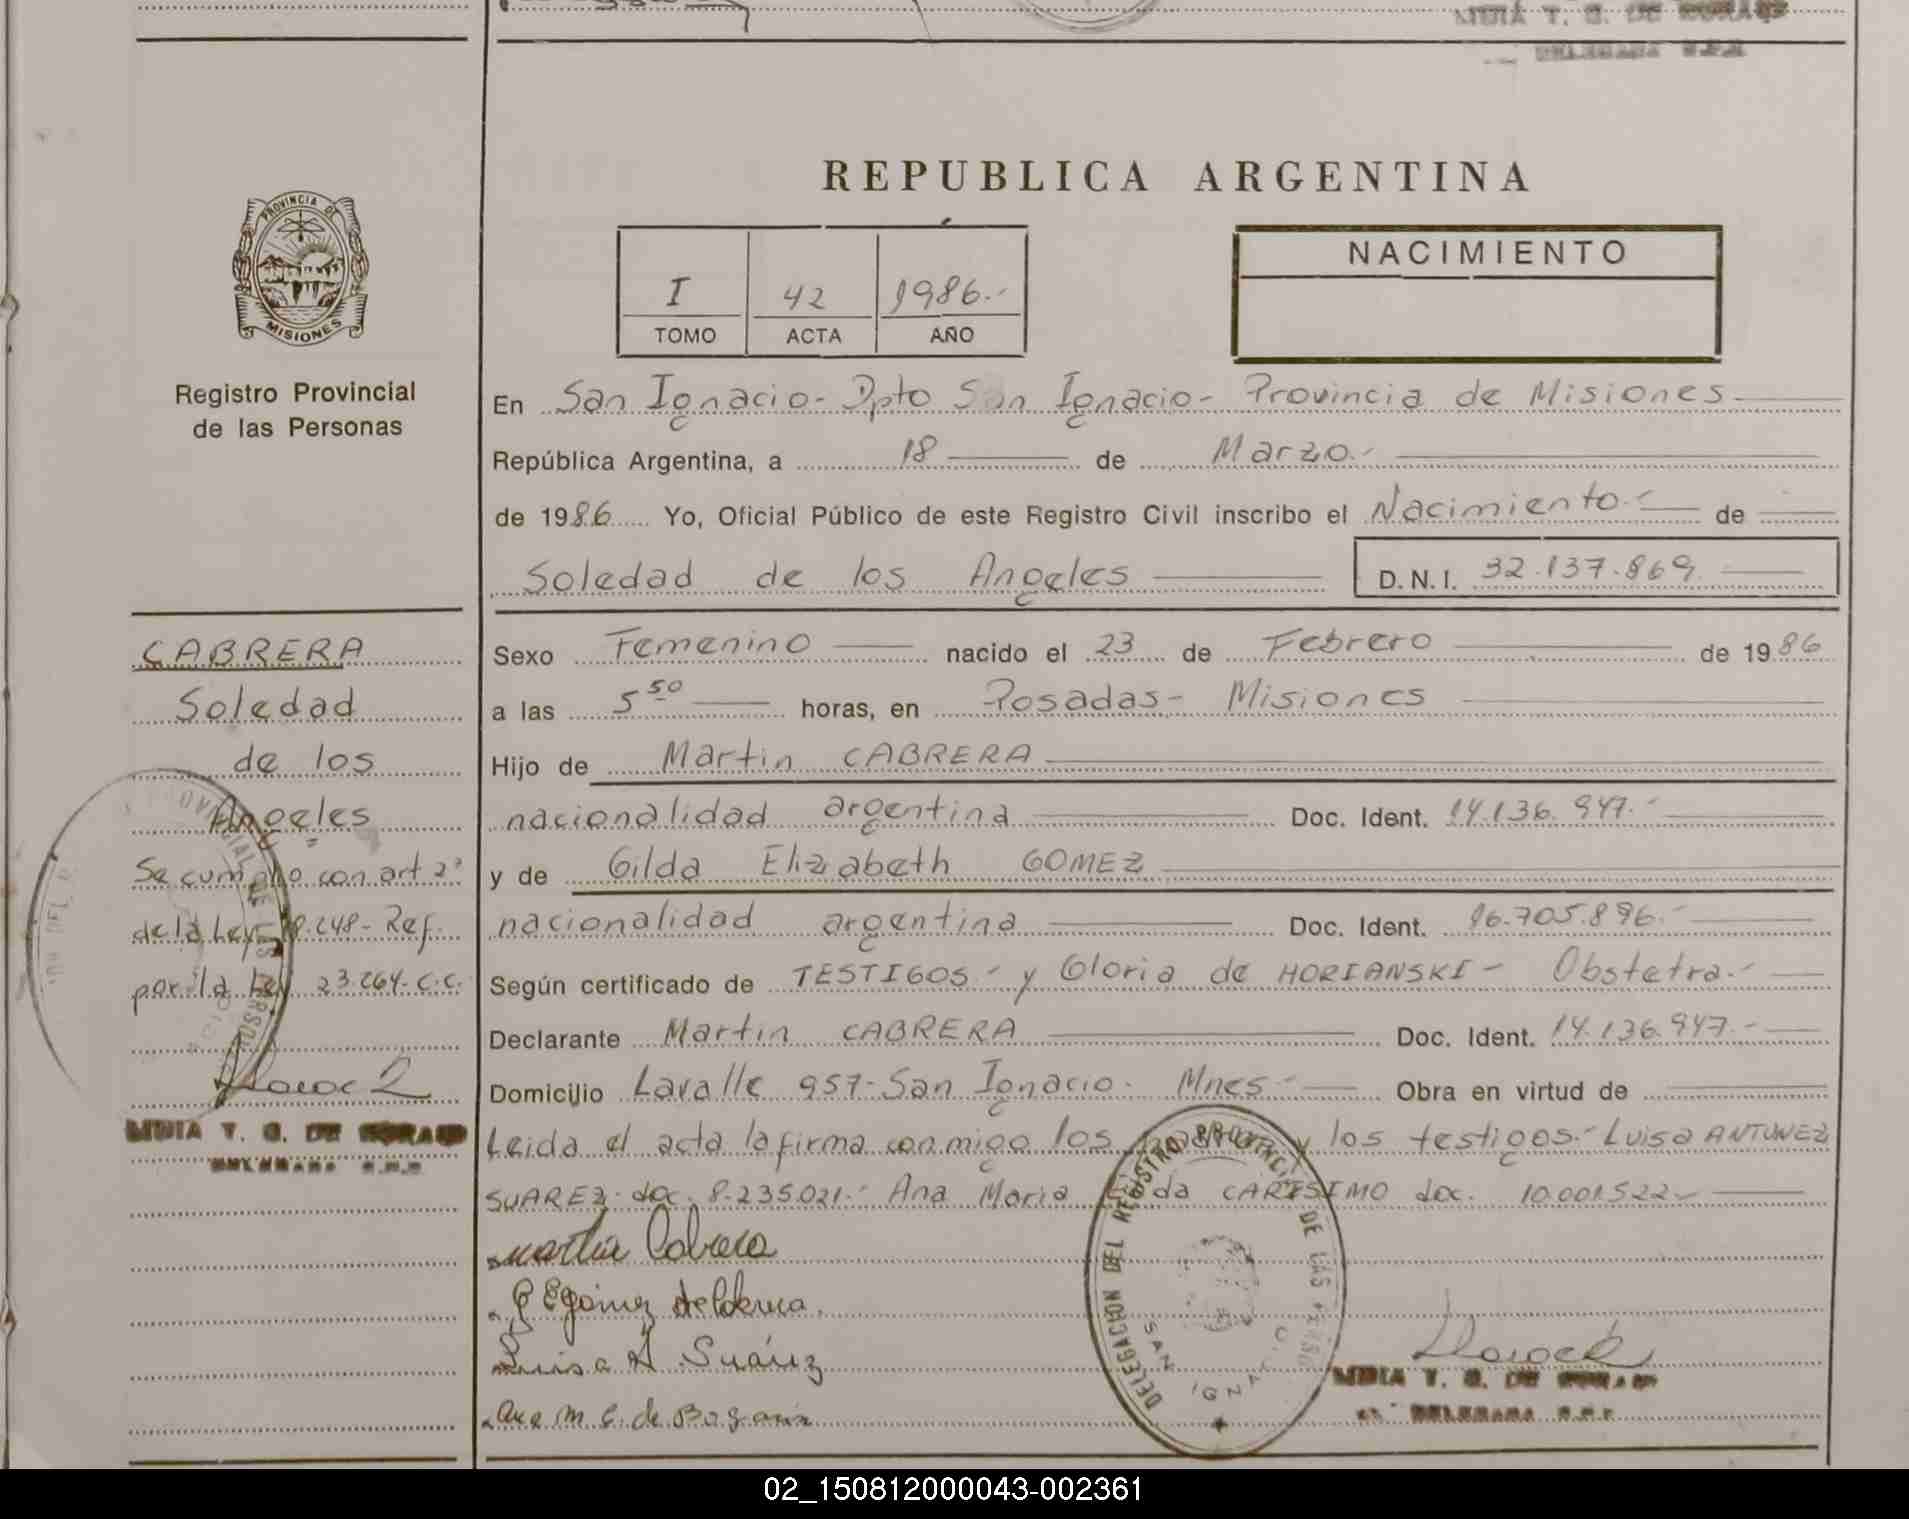 MIRTA T. G. DE
DELEGADA R.P.P.
REPUBLICA ARGENTINA
PROVINCIA DE
MISIONES
NACIMIENTO
I 42 1986.-
TOMO ACTA AÑO
Registro Provincial
de las Personas
En San Ignacio- Dpto San Ignacio- Provincia de Misiones
República Argentina, a 18 de Marzo.-
de 1986 Yo, Oficial Público de este Registro Civil inscribo el Nacimiento.- de
Soledad de los Angeles D.N.I. 32.137.869
CABRERA
Soledad
de los
Angeles
Se cumplio con art 2°
de la Ley 18.248- Ref.
por la Ley 23.264- C.C.
Sexo Femenino nacido el 23 de Febrero de 1986
a las 5 50 horas, en Posadas- Misiones
Hijo de Martin CABRERA
nacionalidad argentina Doc. Ident. 14.136.947.-
y de Gilda Elizabeth GOMEZ
nacionalidad argentina Doc. Ident. 16.705.896.-
Según certificado de TESTIGOS.- y Gloria de HORIANSKI- Obstetra.-
Declarante Martin CABRERA Doc. Ident. 14.136.947.-
Domicilio Lavalle 957- San Ignacio- Mnes- Obra en virtud de
Leida el acta la firma conmigo los padres y los testigos.- Luisa ANTUNEZ
SUAREZ- doc. 8.235.021.- Ana Maria CARISIMO doc. 10.001.522.-
Martin Cabrera
G E Gomez de Cabrera.
Luisa A Suárez
Ana M C. de
DELEGACION DEL REGISTRO PROVINCIAL DE LAS PERSONAS
SAN IGNACIO
T. G. DE
DELEGADA
02_150812000043-002361